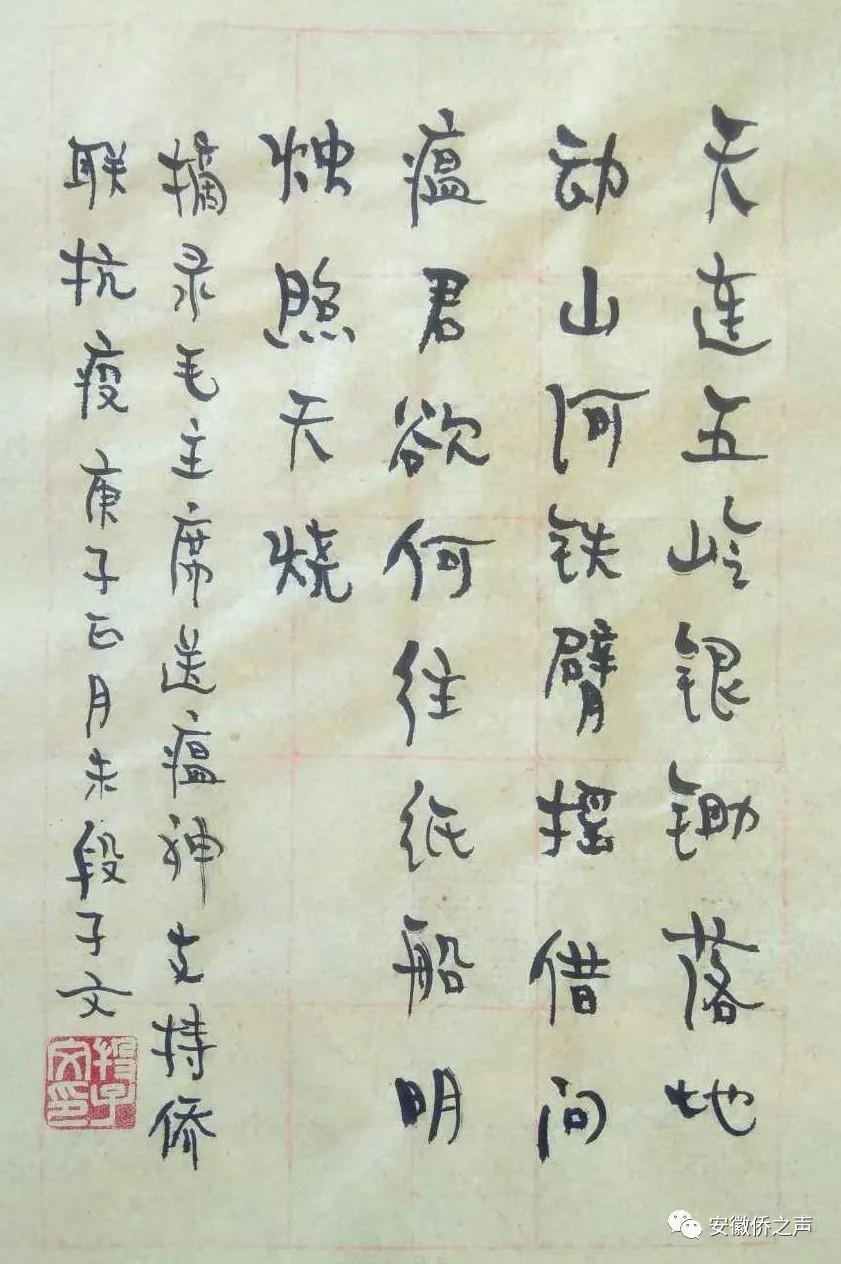 天连五岭银锄落地
动山河铁臂摇借问
瘟君欲何往纸船明
烛照天烧
摘录毛主席送瘟神支持侨
联抗疫庚子正月末段子文
段子文印
安徽侨之声